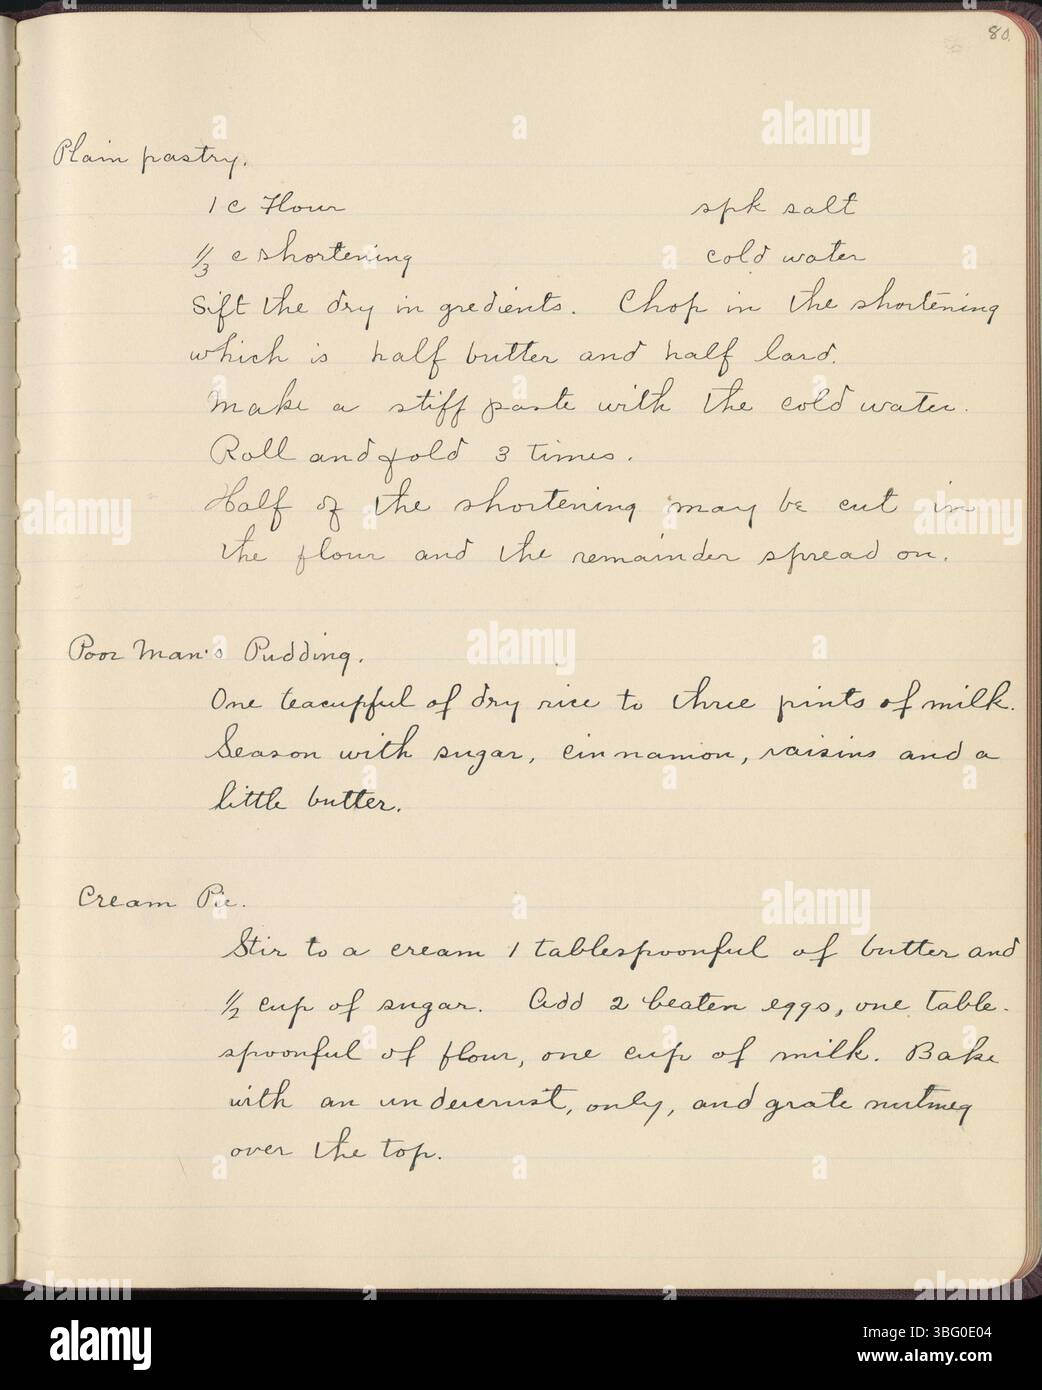 80.
Plain pastry.
1 c Flour spk salt
1/3 c shortening cold water
Sift the dry in gredients. Chop in the shortening
which is half butter and half lard.
Make a stiff paste with the cold water.
Roll and fold 3 times.
Half of the shortening may be cut in
the flour and the remainder spread on.
Poor Man's Pudding.
One teacupful of dry rice to three pints of milk.
Season with sugar, cinnamon, raisins and a
little butter.
Cream Pie.
Stir to a cream 1 tablespoonful of butter and
1/2 cup of sugar. Add 2 beaten eggs, one table-
spoonful of flour, one cup of milk. Bake
with an undercrust, only, and grate nutmeg
over the top.
alamy
Image ID: 3BG0E04
www.alamy.com